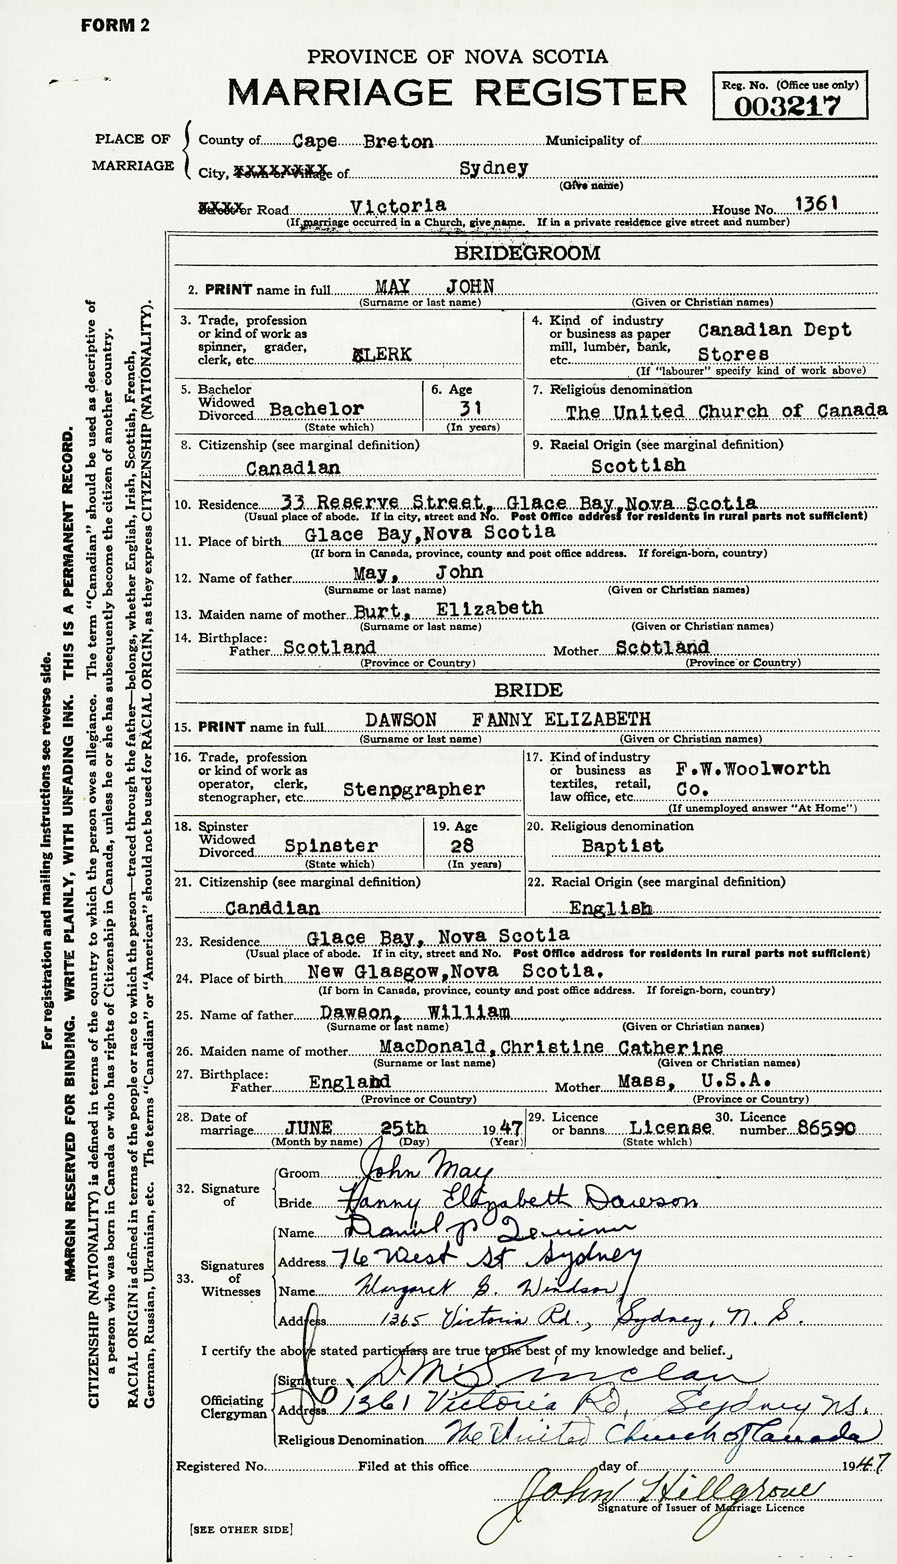 FORM 2
PROVINCE OF NOVA SCOTIA
MARRIAGE REGISTER
Reg. No. (Office use only)
003217
PLACE OF MARRIAGE
County of Cape Breton Municipality of
City, Town or Village of Sydney
(Give name)
Street or Road Victoria House No. 1361
(If marriage occurred in a Church, give name. If in a private residence give street and number)
BRIDEGROOM
2. PRINT name in full MAY JOHN
(Surname or last name) (Given or Christian names)
3. Trade, profession
or kind of work as
spinner, grader,
clerk, etc. CLERK
4. Kind of industry
or business as paper
mill, lumber, bank,
etc. Canadian Dept
Stores
(If "labourer" specify kind of work above)
5. Bachelor
Widowed
Divorced Bachelor
(State which)
6. Age
31
(In years)
7. Religious denomination
The United Church of Canada
8. Citizenship (see marginal definition)
Canadian
9. Racial Origin (see marginal definition)
Scottish
10. Residence 33 Reserve Street, Glace Bay,Nova Scotia
(Usual place of abode. If in city, street and No. Post Office address for residents in rural parts not sufficient)
11. Place of birth Glace Bay,Nova Scotia
(If born in Canada, province, county and post office address. If foreign-born, country)
12. Name of father May, John
(Surname or last name) (Given or Christian names)
13. Maiden name of mother Burt, Elizabeth
(Surname or last name) (Given or Christian names)
14. Birthplace:
Father Scotland Mother Scotland
(Province or Country) (Province or Country)
BRIDE
15. PRINT name in full DAWSON FANNY ELIZABETH
(Surname or last name) (Given or Christian names)
16. Trade, profession
or kind of work as
operator, clerk,
stenographer, etc. Stenpgrapher
17. Kind of industry
or business as
textiles, retail,
law office, etc. F.W.Woolworth
Co.
(If unemployed answer "At Home")
18. Spinster
Widowed
Divorced Spinster
(State which)
19. Age
28
(In years)
20. Religious denomination
Baptist
21. Citizenship (see marginal definition)
Canadian
22. Racial Origin (see marginal definition)
English
23. Residence Glace Bay, Nova Scotia
(Usual place of abode. If in city, street and No. Post Office address for residents in rural parts not sufficient)
24. Place of birth New Glasgow,Nova Scotia.
(If born in Canada, province, county and post office address. If foreign-born, country)
25. Name of father Dawson, William
(Surname or last name) (Given or Christian names)
26. Maiden name of mother MacDonald,Christine Catherine
(Surname or last name) (Given or Christian names)
27. Birthplace:
Father England Mother Mass, U.S.A.
(Province or Country) (Province or Country)
28. Date of
marriage JUNE 25th 1947
(Month by name) (Day) (Year)
29. Licence
or banns License
(State which)
30. Licence
number 86590
32. Signature of
Groom John May
Bride Fanny Elizabeth Dawson
33. Signatures of Witnesses
Name Daniel P Quinn
Address 76 West St Sydney
Name Margaret G. Windsor
Address 1365 Victoria Rd., Sydney, N. S.
I certify the above stated particulars are true to the best of my knowledge and belief.
Officiating Clergyman
Signature D M Sinclair
Address 1361 Victoria Rd, Sydney NS.
Religious Denomination The United Church of Canada
Registered No. Filed at this office day of 1947
John Hillgrove
Signature of Issuer of Marriage Licence
[SEE OTHER SIDE]
For registration and mailing instructions see reverse side.
MARGIN RESERVED FOR BINDING. WRITE PLAINLY, WITH UNFADING INK. THIS IS A PERMANENT RECORD.
CITIZENSHIP (NATIONALITY) is defined in terms of the country to which the person owes allegiance. The term "Canadian" should be used as descriptive of
a person who was born in Canada or who has rights of Citizenship in Canada, unless he or she has subsequently become the citizen of another country.
RACIAL ORIGIN is defined in terms of the people or race to which the person—traced through the father—belongs, whether English, Irish, Scottish, French,
German, Russian, Ukrainian, etc. The terms "Canadian" or "American" should not be used for RACIAL ORIGIN, as they express CITIZENSHIP (NATIONALITY).